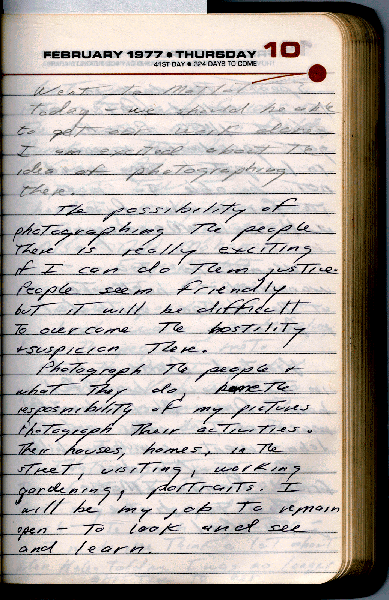 FEBRUARY 1977 • THURSDAY 10
41ST DAY • 324 DAYS TO COME
Went to
today - we should be able
to get our work done
I am excited about the
idea of photographing
there.
The possibility of
photographing the people
there is really exciting
if I can do them justice.
People seem friendly
but it will be difficult
to over come the hostility
+ suspicion there.
Photograph the people +
what they do, the
resposnibility of my pictures
Photograph their activities.
Their houses, homes, in the
street, visiting, working
gardening, portraits. I
will be my job to remain
open - to look and see
and learn.